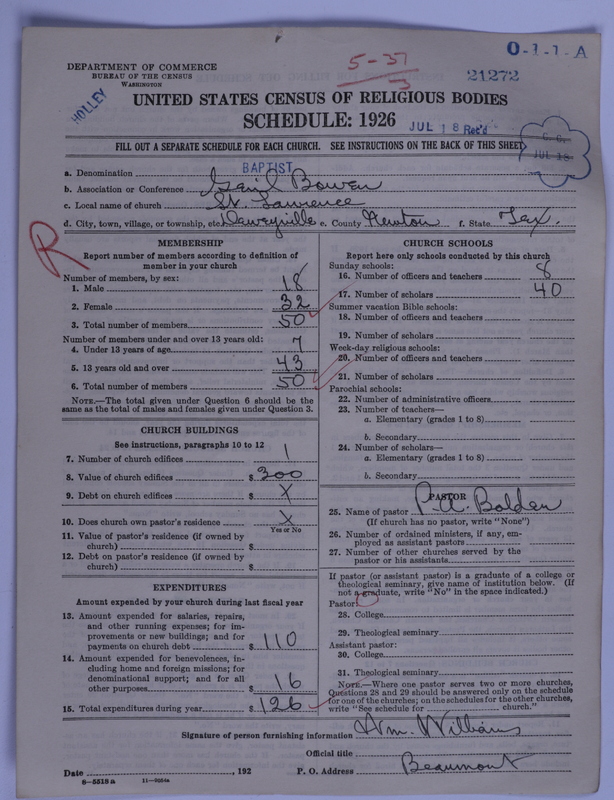 DEPARTMENT OF COMMERCE
BUREAU OF THE CENSUS
WASHINGTON
HOLLEY
5-37
3
0-1-1-A
21272
UNITED STATES CENSUS OF RELIGIOUS BODIES
SCHEDULE: 1926
JUL 18 Rec'd
C. S.
JUL 18
FILL OUT A SEPARATE SCHEDULE FOR EACH CHURCH. SEE INSTRUCTIONS ON THE BACK OF THIS SHEET
a. Denomination BAPTIST
b. Association or Conference Gail Bowen
c. Local name of church St. Lawrence
d. City, town, village, or township, etc. Daweyville e. County Newton f. State Tex.
R
MEMBERSHIP
Report number of members according to definition of
member in your church
Number of members, by sex:
1. Male 18
2. Female 32
3. Total number of members 50
Number of members under and over 13 years old:
4. Under 13 years of age 7
5. 13 years old and over 43
6. Total number of members 50
NOTE.—The total given under Question 6 should be
same as the total of males and females given under Question 3.
CHURCH BUILDINGS
See instructions, paragraphs 10 to 12
7. Number of church edifices 1
8. Value of church edifices $ 300
9. Debt on church edifices $ X
10. Does church own pastor's residence X
Yes or No
11. Value of pastor's residence (if owned by
church) $
12. Debt on pastor's residence (if owned by
church) $
EXPENDITURES
Amount expended by your church during last fiscal year
13. Amount expended for salaries, repairs,
and other running expenses; for im-
provements or new buildings; and for
payments on church debt $ 110
14. Amount expended for benevolences, in-
cluding home and foreign missions; for
denominational support; and for all
other purposes 16
15. Total expenditures during year $ 126
CHURCH SCHOOLS
Report here only schools conducted by this church
Sunday schools:
16. Number of officers and teachers 8
17. Number of scholars 40
Summer vacation Bible schools:
18. Number of officers and teachers
19. Number of scholars
Week-day religious schools:
20. Number of officers and teachers
21. Number of scholars
Parochial schools:
22. Number of administrative officers
23. Number of teachers—
a. Elementary (grades 1 to 8)
b. Secondary
24. Number of scholars—
a. Elementary (grades 1 to 8)
b. Secondary
PASTOR
25. Name of pastor P. A. Bolden
(If church has no pastor, write "None")
26. Number of ordained ministers, if any, em-
ployed as assistant pastors
27. Number of other churches served by the
pastor or his assistants
If pastor (or assistant pastor) is a graduate of a college or
theological seminary, give name of institution below. (If
not a graduate, write "No" in the space indicated.)
Pastor:
28. College
29. Theological seminary
Assistant pastor:
30. College
31. Theological seminary
NOTE.—Where one pastor serves two or more churches,
Questions 28 and 29 should be answered only on the schedule
for one of the churches; on the schedules for the other churches,
write "See schedule for church."
Signature of person furnishing information Wm. Williams
Official title
Date , 192 P. O. Address Beaumont
8-5518a 11-9054a